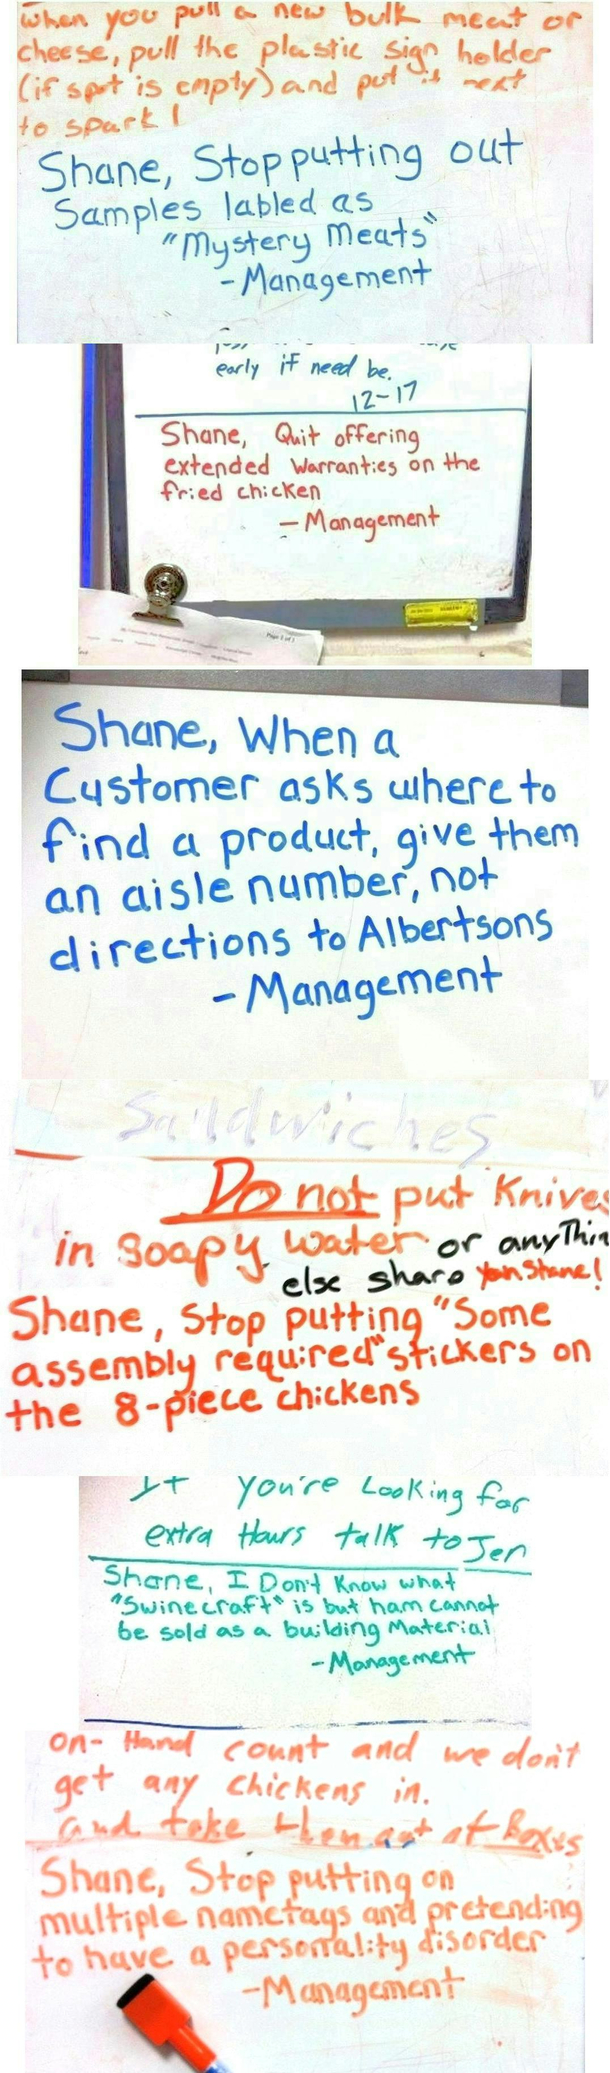 when you pull a new bulk meat or
cheese, pull the plastic sign holder
(if spot is empty) and put it next
to spark!
Shane, Stop putting out
Samples labled as
"Mystery Meats"
- Management
early if need be.
12-17
Shane, Quit offering
extended warranties on the
fried chicken
- Management
Page 1 of 1
Shane, When a
Customer asks where to
find a product, give them
an aisle number, not
directions to Albertsons
- Management
Sandwiches
Do not put Knives
in soapy water or anyThin
else sharp Shane!
Shane, Stop putting "Some
assembly required" stickers on
the 8-piece chickens
If you're Looking for
extra Hours talk to Jen
Shane, I Don't Know what
"Swinecraft" is but ham cannot
be sold as a building Material
- Management
on-Hand count and we don't
get any chickens in.
and take them out of Boxes
Shane, Stop putting on
multiple nametags and pretending
to have a personality disorder
- Management